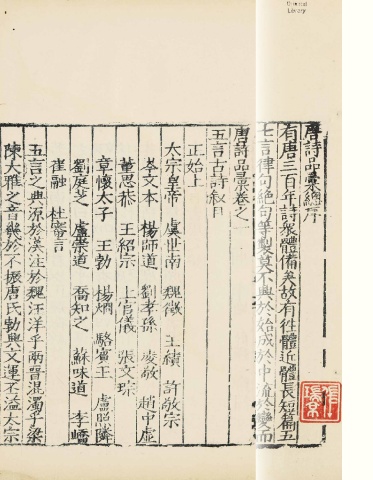 Oriental
Library
唐詩品彙總序
有唐三百年詩衆體備矣故有往體近體長短篇五
七言律句絶句等製莫不興於始成於中流於變而
唐詩品彙卷之一
五言古詩敘目
正始上
太宗皇帝 虞世南 魏徵 王績 許敬宗
岑文本 楊師道 劉孝孫 凌敬 趙中虛
董思恭 王紹宗 上官儀 張文琮
章懷太子 王勃 楊烱 駱賓王 盧照鄰
劉庭芝 盧崇道 喬知之 蘇味道 李嶠
崔融 杜審言
五言之興源於漢注於魏汪洋乎兩晉混濁乎梁
陳大雅之音幾於不振唐氏勃興文運丕溢太宗